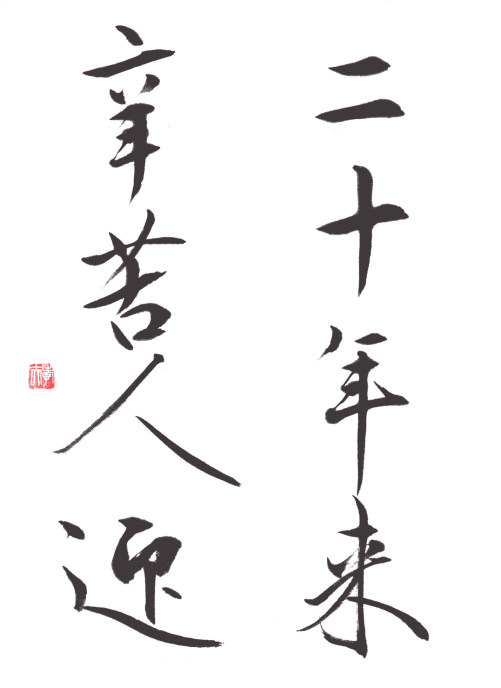 二十年来
辛苦人迎